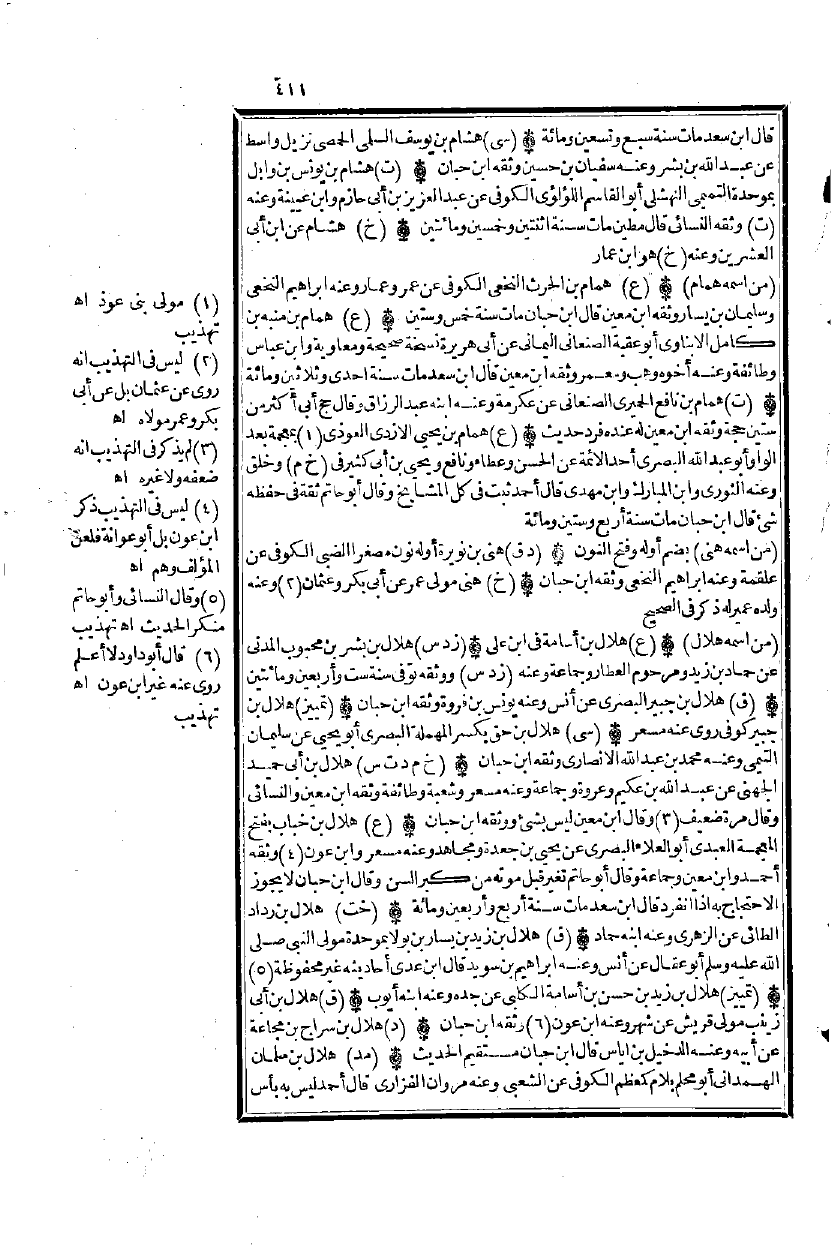 ٤١١
قال ابن سعد مات سنة سبع وتسعين ومائة ۞ (سى) هشام بن يوسف السلمى الحمصى نزيل واسط
عن عبد الله بن بشر وعنه سفيان بن حسين وثقه ابن حبان ۞ (ت) هشام بن يونس بن وابل
بموحدة التميمى النهشلى أبو القاسم اللؤلؤى الكوفى عن عبد العزيز بن أبى حازم وابن عيينة وعنه
(ت) وثقه النسائى قال مطين مات سنة اثنتين وخمسين ومائتين ۞ (خ) هشام عن ابن أبى
العشرين وعنه (خ) هو ابن عمار
(من اسمه همام) ۞ (ع) همام بن الحرث النخعى الكوفى عن عمر وعمار وعنه ابراهيم النخعى
وسليمان بن يسار وثقه ابن معين قال ابن حبان مات سنة خمس وستين ۞ (ع) همام بن منبه بن
كامل الابناوى أبو عقبة الصنعانى اليمانى عن أبى هريرة نسخة صحيحة ومعاوية وابن عباس
وطائفة وعنه أخوه وهب ومعمر وثقه ابن معين قال ابن سعد مات سنة احدى وثلاثين ومائة
۞ (ت) همام بن نافع الحميرى الصنعانى عن عكرمة وعنه ابنه عبد الرزاق وقال حج أبى أكثر من
ستين حجة وثقه ابن معين له عنده فرد حديث ۞ (ع) همام بن يحيى الازدى العوذى (١) بمعجمة بعد
الواو أبو عبد الله البصرى أحد الائمة عن الحسن وعطاء ونافع ويحيى بن أبى كثير فى (خ م) وخلق
وعنه الثورى وابن المبارك وابن مهدى قال أحمد ثبت فى كل المشايخ وقال أبو حاتم ثقة فى حفظه
شئ قال ابن حبان مات سنة أربع وستين ومائة
(من اسمه هنى) بضم أوله وفتح النون ۞ (د ق) هنى بن نويرة أوله نون مصغرا الضبى الكوفى عن
علقمة وعنه ابراهيم النخعى وثقه ابن حبان ۞ (خ) هنى مولى عمر عن أبى بكر وعثمان (٢) وعنه
ولده عمير له ذكر فى الصحيح
(من اسمه هلال) ۞ (ع) هلال بن أسامة فى ابن على ۞ (ز د س) هلال بن بشر بن محبوب المدنى
عن حماد بن زيد ومرحوم العطار وجماعة وعنه (ز د س) ووثقه توفى سنة ست وأربعين ومائتين
۞ (ق) هلال بن جبير البصرى عن أنس وعنه يونس بن فروة وثقه ابن حبان ۞ (تمييز) هلال بن
جبير كوفى روى عنه مسعر ۞ (سى) هلال بن حق بكسر المهملة البصرى أبو يحيى عن سليمان
التيمى وعنه محمد بن عبد الله الانصارى وثقه ابن حبان ۞ (خ م د ت س) هلال بن أبى حميد
الجهنى عن عبد الله بن عكيم وعروة وجماعة وعنه مسعر وشعبة وطائفة وثقه ابن معين والنسائى
وقال مرة ضعيف (٣) وقال ابن معين ليس بشئ ووثقه ابن حبان ۞ (ع) هلال بن خباب بفتح
المعجمة العبدى أبو العلاء البصرى عن يحيى بن جعدة ومجاهد وعنه مسعر وابن عون (٤) وثقه
أحمد وابن معين وجماعة وقال أبو حاتم تغير قبل موته من كبر السن وقال ابن حبان لا يجوز
الاحتجاج به اذا انفرد قال ابن سعد مات سنة أربع وأربعين ومائة ۞ (خت) هلال بن رداد
الطائى عن الزهرى وعنه ابنه حماد ۞ (ق) هلال بن زيد بن يسار بن بولا بموحدة مولى النبى صلى
الله عليه وسلم أبو عقال عن أنس وعنه ابراهيم بن سويد قال ابن عدى أحاديثه غير محفوظة (٥)
۞ (تمييز) هلال بن زيد بن حسن بن أسامة الكلبى عن جده وعنه ابنه أيوب ۞ (ق) هلال بن أبى
زينب مولى قريش عن شهر وعنه ابن عون (٦) وثقه ابن حبان ۞ (د) هلال بن سراج بن مجاعة
عن أبيه وعنه الدخيل بن اياس قال ابن حبان مستقيم الحديث ۞ (مد) هلال بن سلمان
الهمدانى أبو محلم بلام كمعظم الكوفى عن الشعبى وعنه مروان الفزارى قال أحمد ليس به بأس
(١) مولى بنى عوذ اه
تهذيب
(٢) ليس فى التهذيب انه
روى عن عثمان بل عن أبى
بكر وعمر مولاه اه
(٣) لم يذكر فى التهذيب انه
ضعفه ولا غيره اه
(٤) ليس فى التهذيب ذكر
ابن عون بل أبو عوانة فلعل
المؤلف وهم اه
(٥) وقال النسائى وأبو حاتم
منكر الحديث اه تهذيب
(٦) قال أبو داود لا أعلم
روى عنه غير ابن عون اه
تهذيب